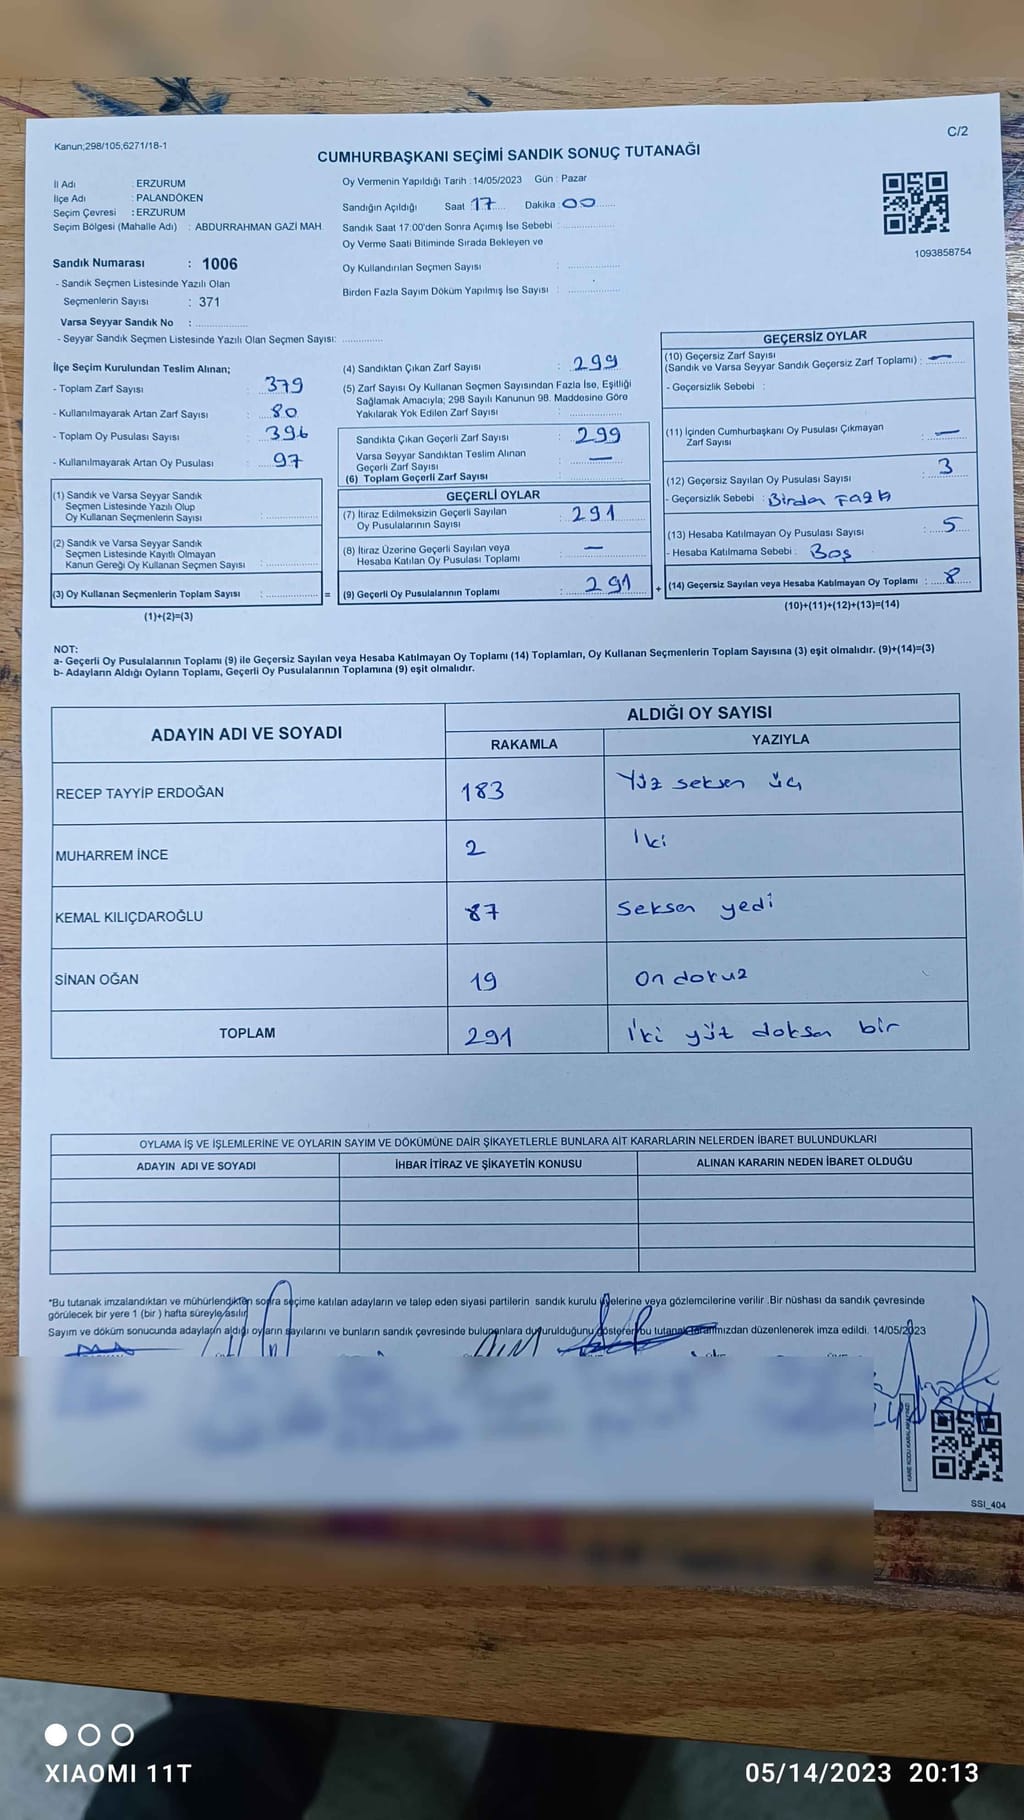 Kanun;298/105,6271/18-1
C/2
CUMHURBAŞKANI SEÇİMİ SANDIK SONUÇ TUTANAĞI
İl Adı : ERZURUM
İlçe Adı : PALANDÖKEN
Seçim Çevresi : ERZURUM
Seçim Bölgesi (Mahalle Adı) : ABDURRAHMAN GAZİ MAH.
Sandık Numarası : 1006
- Sandık Seçmen Listesinde Yazılı Olan
Seçmenlerin Sayısı : 371
Varsa Seyyar Sandık No :
- Seyyar Sandık Seçmen Listesinde Yazılı Olan Seçmen Sayısı:
Oy Vermenin Yapıldığı Tarih : 14/05/2023 Gün : Pazar
Sandığın Açıldığı Saat 17 Dakika 00
Sandık Saat 17.00'den Sonra Açımış İse Sebebi :
Oy Verme Saati Bitiminde Sırada Bekleyen ve
Oy Kullandırılan Seçmen Sayısı :
Birden Fazla Sayım Döküm Yapılmış İse Sayısı :
1093858754
İlçe Seçim Kurulundan Teslim Alınan;
- Toplam Zarf Sayısı : 379
- Kullanılmayarak Artan Zarf Sayısı : 80
- Toplam Oy Pusulası Sayısı : 396
- Kullanılmayarak Artan Oy Pusulası : 97
(1) Sandık ve Varsa Seyyar Sandık
Seçmen Listesinde Yazılı Olup
Oy Kullanan Seçmenlerin Sayısı :
(2) Sandık ve Varsa Seyyar Sandık
Seçmen Listesinde Kayıtlı Olmayan
Kanun Gereği Oy Kullanan Seçmen Sayısı :
(3) Oy Kullanan Seçmenlerin Toplam Sayısı : =
(1)+(2)=(3)
(4) Sandıktan Çıkan Zarf Sayısı : 299
(5) Zarf Sayısı Oy Kullanan Seçmen Sayısından Fazla İse, Eşitliği
Sağlamak Amacıyla; 298 Sayılı Kanunun 98. Maddesine Göre
Yakılarak Yok Edilen Zarf Sayısı :
Sandıkta Çıkan Geçerli Zarf Sayısı : 299
Varsa Seyyar Sandıktan Teslim Alınan
Geçerli Zarf Sayısı : —
(6) Toplam Geçerli Zarf Sayısı :
GEÇERLİ OYLAR
(7) İtiraz Edilmeksizin Geçerli Sayılan
Oy Pusulalarının Sayısı : 291
(8) İtiraz Üzerine Geçerli Sayılan veya
Hesaba Katılan Oy Pusulası Toplamı : —
(9) Geçerli Oy Pusulalarının Toplamı : 291 +
GEÇERSİZ OYLAR
(10) Geçersiz Zarf Sayısı
(Sandık ve Varsa Seyyar Sandık Geçersiz Zarf Toplamı) : —
- Geçersizlik Sebebi :
(11) İçinden Cumhurbaşkanı Oy Pusulası Çıkmayan
Zarf Sayısı : —
(12) Geçersiz Sayılan Oy Pusulası Sayısı : 3
- Geçersizlik Sebebi : Birden Fazla
(13) Hesaba Katılmayan Oy Pusulası Sayısı : 5
- Hesaba Katılmama Sebebi : Boş
(14) Geçersiz Sayılan veya Hesaba Katılmayan Oy Toplamı : 8
(10)+(11)+(12)+(13)=(14)
NOT:
a- Geçerli Oy Pusulalarının Toplamı (9) ile Geçersiz Sayılan veya Hesaba Katılmayan Oy Toplamı (14) Toplamları, Oy Kullanan Seçmenlerin Toplam Sayısına (3) eşit olmalıdır. (9)+(14)=(3)
b- Adayların Aldığı Oyların Toplamı, Geçerli Oy Pusulalarının Toplamına (9) eşit olmalıdır.
ADAYIN ADI VE SOYADI
ALDIĞI OY SAYISI
RAKAMLA YAZIYLA
RECEP TAYYİP ERDOĞAN 183 Yüz seksen üç
MUHARREM İNCE 2 İki
KEMAL KILIÇDAROĞLU 87 Seksen yedi
SİNAN OĞAN 19 On dokuz
TOPLAM 291 İki yüz doksan bir
OYLAMA İŞ VE İŞLEMLERİNE VE OYLARIN SAYIM VE DÖKÜMÜNE DAİR ŞİKAYETLERLE BUNLARA AİT KARARLARIN NELERDEN İBARET BULUNDUKLARI
ADAYIN ADI VE SOYADI İHBAR İTİRAZ VE ŞİKAYETİN KONUSU ALINAN KARARIN NEDEN İBARET OLDUĞU
*Bu tutanak imzalandıktan ve mühürlendikten sonra seçime katılan adayların ve talep eden siyasi partilerin sandık kurulu üyelerine veya gözlemcilerine verilir. Bir nüshası da sandık çevresinde
görülecek bir yere 1 (bir ) hafta süreyle asılır.
Sayım ve döküm sonucunda adayların aldığı oyların sayılarını ve bunların sandık çevresinde bulunanlara duyurulduğunu gösteren bu tutanak tarafımızdan düzenlenerek imza edildi. 14/05/2023
SSI_404
XIAOMI 11T
05/14/2023 20:13